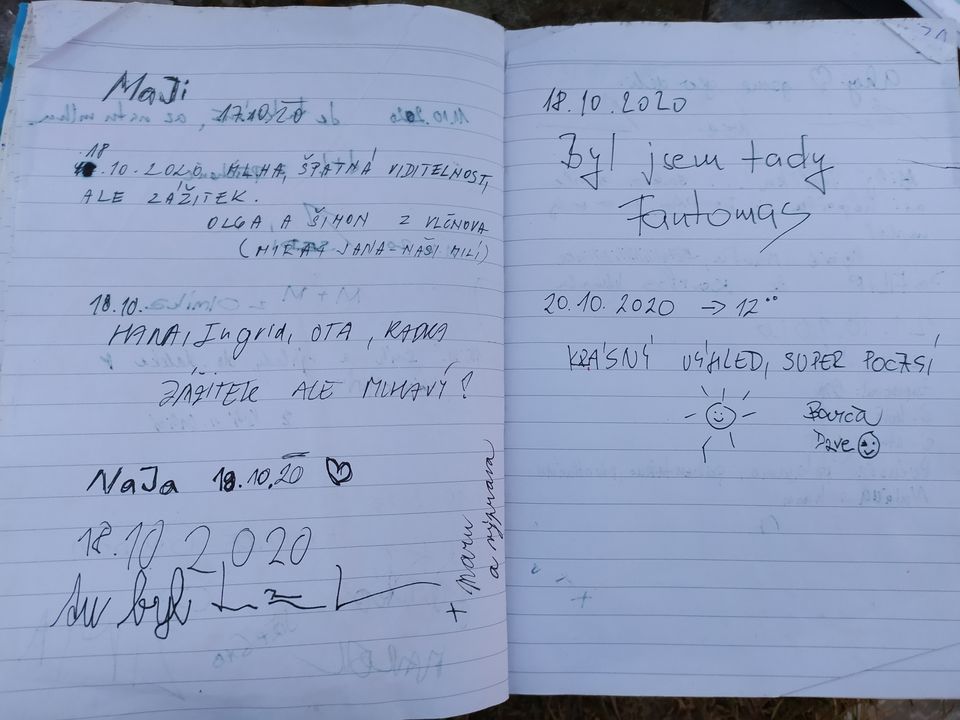 MaJi
17.10.20
18.10.2020 MLHA, ŠPATNÁ VIDITELNOST,
ALE ZÁŽITEK.
OLGA A ŠIMON Z VLČNOVA
JANA-NAŠI MILÍ)
18.10.
HANA, Ingrid, OTA, RADKA
ZÁŽITEK ALE MLHAVÝ!
NaJa 18.10.20
18.10 2020
tu byl
a výprava
18.10.2020
Byl jsem tady
Fantomas
20.10.2020 → 12°°
KRÁSNÝ VÝHLED, SUPER POČASÍ
Barča
Dave